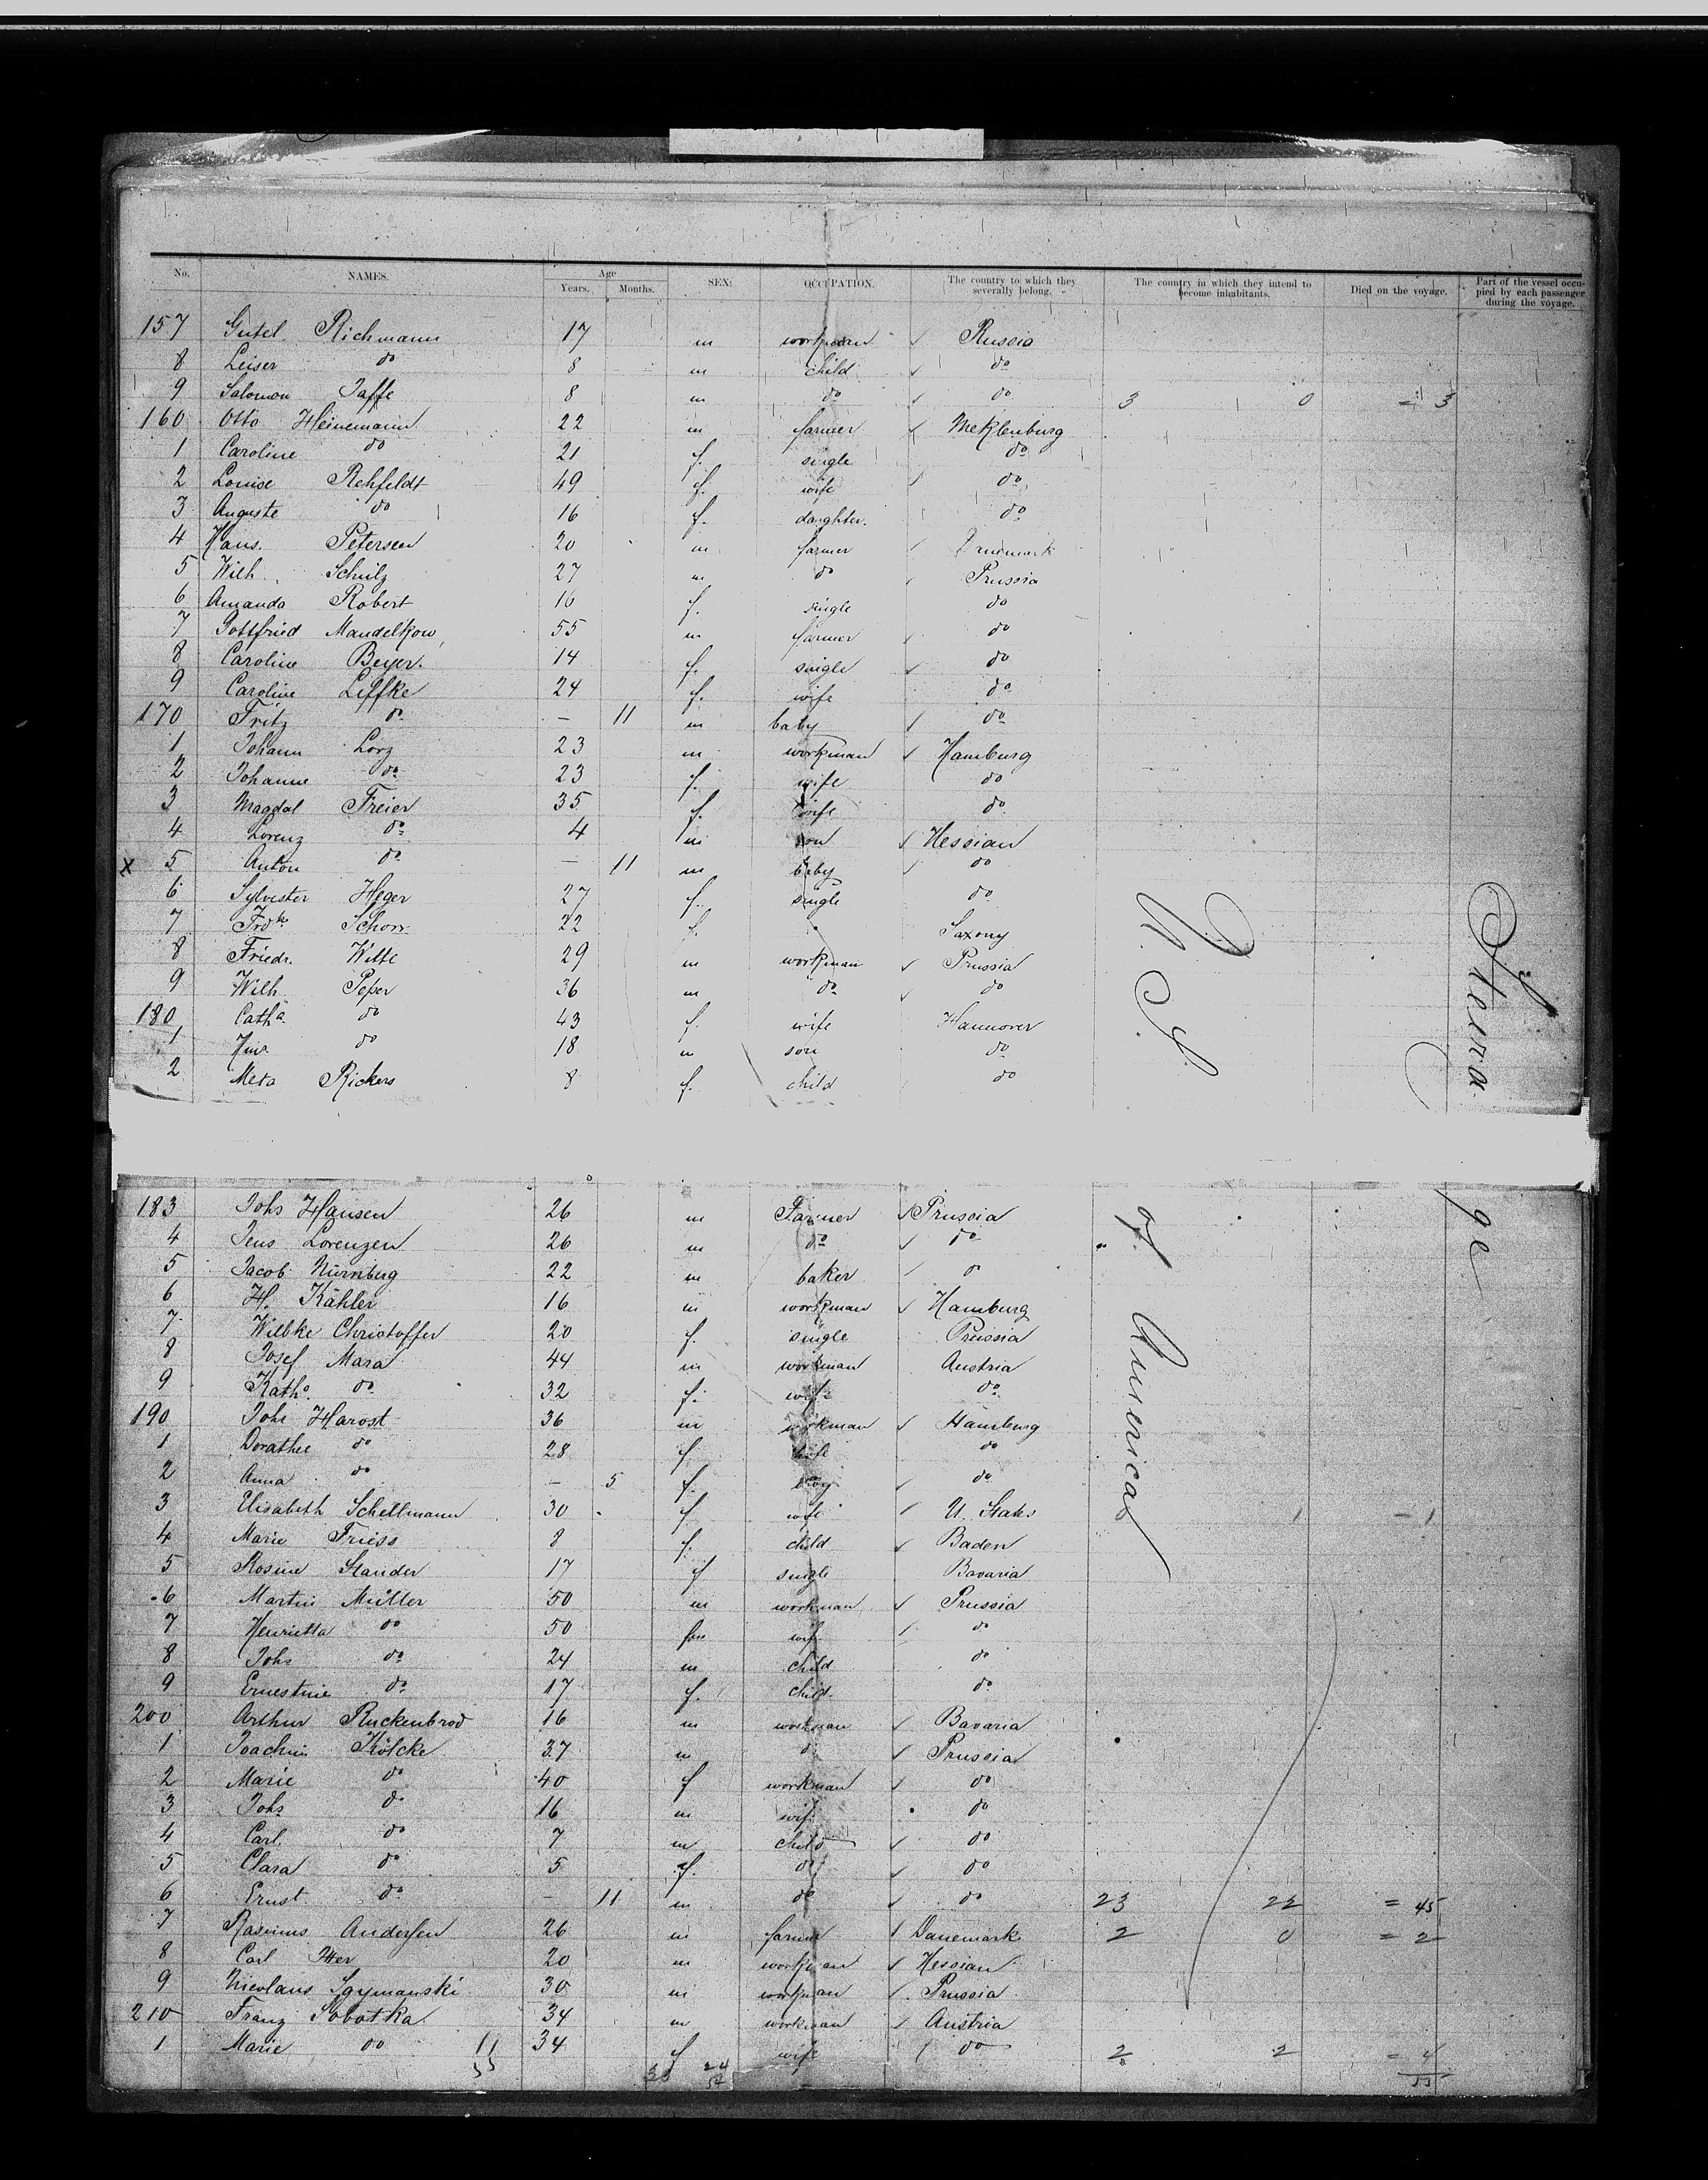 No. NAMES. Age Years. Months. SEX: OCCUPATION. The country to which they severally belong. The country in which they intend to become inhabitants. Died on the voyage. Part of the vessel occupied by each passenger during the voyage.
157 Gutel Richmann 17 m workman Russia
8 Leiser do 8 m child do
9 Salomon Jaffe 8 m do do 3 0 = 3
160 Otto Heinemann 22 m farmer Meklenburg
1 Caroline do 21 f. single do
2 Louise Rehfeldt 49 f. wife do
3 Auguste do 16 f. daughter. do
4 Hans. Petersen 20 m farmer
5 Wilh. Schulz 27 m do Prussia
6 Amanda Robert 16 f. single do
7 Gottfried Mandelkow 55 m farmer do
8 Caroline Beyer. 14 f. single do
9 Caroline Liffke 24 f. wife do
170 Fritz do — 11 m baby do
1 Johann Lorz 23 m workman Hamburg
2 Johanne do 23 f. wife do
3 Magdal Freier 35 f. wife do
4 Lorenz do 4 m son Hessian
x 5 Anton do — 11 m baby do
6 Sylvester Heger 27 f. single do
7 Frdke Schorr 22 f. Saxony
8 Friedr. Witte 29 m workman Prussia
9 Wilh. Peper 36 m do do
180 Catha do 43 f. wife Hannover
1 do 18 m son do
2 Meta Rickers 8 f. child do
U. S.
Steera
183 Johs Hansen 26 m Farmer Prussia
4 Jens Lorenzen 26 m do do
5 Jacob Nürnberg 22 m baker
6 H. Kähler 16 m workman Hamburg
7 Wiebke Christoffer 20 f. single Prussia
8 Josef Mara 44 m workman Austria
9 Katha do 32 f. wife do
190 Johs Harost 36 m workman Hamburg
1 Dorathee do 28 f. wife do
2 Anna do — 5 f. do
3 Elisabeth Schellmann 30 f wife U. States 1 — 1
4 Marie Friess 8 f. child Baden
5 Rosine Stander 17 f single Bavaria
6 Martin Müller 50 m workman Prussia
7 Henrietta do 50 wife do
8 Johs do 24 m child do
9 Ernestine do 17 f. child. do
200 Arthur Ruckenbrod 16 m workman Bavaria
1 Joachim Kölcke 37 m Prussia
2 Marie do 40 f workman do
3 Johs do 16 m wife do
4 Carl. do 7 m child do
5 Clara do 5 f. do do
6 Ernst do — 11 m do do 23 22 = 45
7 Rasmus Andersen 26 m farmer Danemark 2 0 = 2
8 Carl 20 m workman Hessian
9 Nicolaus Sgymanski 30 m workman Prussia
210 Franz Sobotka 34 m workman Austria
1 Marie do 11 34 f wife do 2 2 = 4
of America
ge